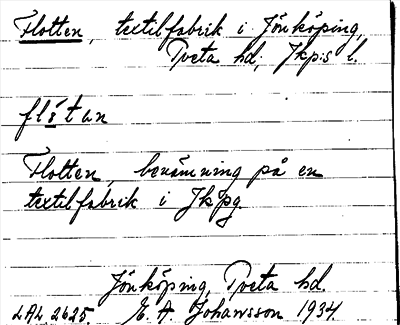 Flotten, textilfabrik i Jönköping,
Tveta hd; Jkp:s l.
flå̀tan
Flotten, benämning på en
textilfabrik i Jkpg.
Jönköping, Tveta hd.
LAL 2625. E. A. Johansson 1934